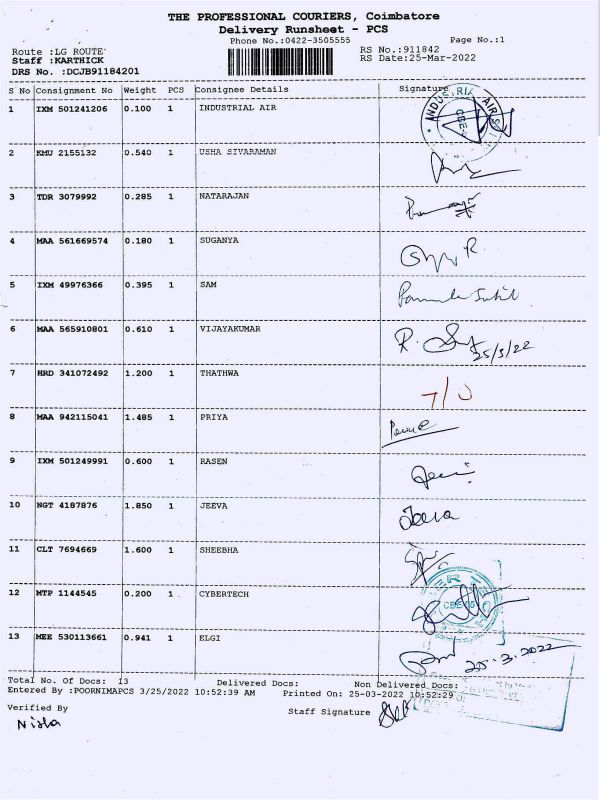 THE PROFESSIONAL COURIERS, Coimbatore
Delivery Runsheet - PCS
Phone No.:0422-3505555 Page No.:1
Route :LG ROUTE RS No.:911842
Staff :KARTHICK RS Date:25-Mar-2022
DRS No. :DCJB91184201
S No Consignment No Weight PCS Consignee Details Signature
1 IXM 501241206 0.100 1 INDUSTRIAL AIR
2 KMU 2155132 0.540 1 USHA SIVARAMAN
3 TDR 3079992 0.285 1 NATARAJAN
4 MAA 561669574 0.180 1 SUGANYA
5 IXM 49976366 0.395 1 SAM
6 MAA 565910801 0.610 1 VIJAYAKUMAR R. 25/3/22
7 HRD 341072492 1.200 1 THATHWA 7/0
8 MAA 942115041 1.485 1 PRIYA
9 IXM 501249991 0.600 1 RASEN
10 NGT 4187876 1.850 1 JEEVA Jeeva
11 CLT 7694669 1.600 1 SHEEBHA
12 MTP 1144545 0.200 1 CYBERTECH
13 MEE 530113661 0.941 1 ELGI 25-3-2022
Total No. Of Docs: 13 Delivered Docs: Non Delivered Docs:
Entered By :POORNIMAPCS 3/25/2022 10:52:39 AM Printed On: 25-03-2022 10:52:29
Verified By Staff Signature
Nisha